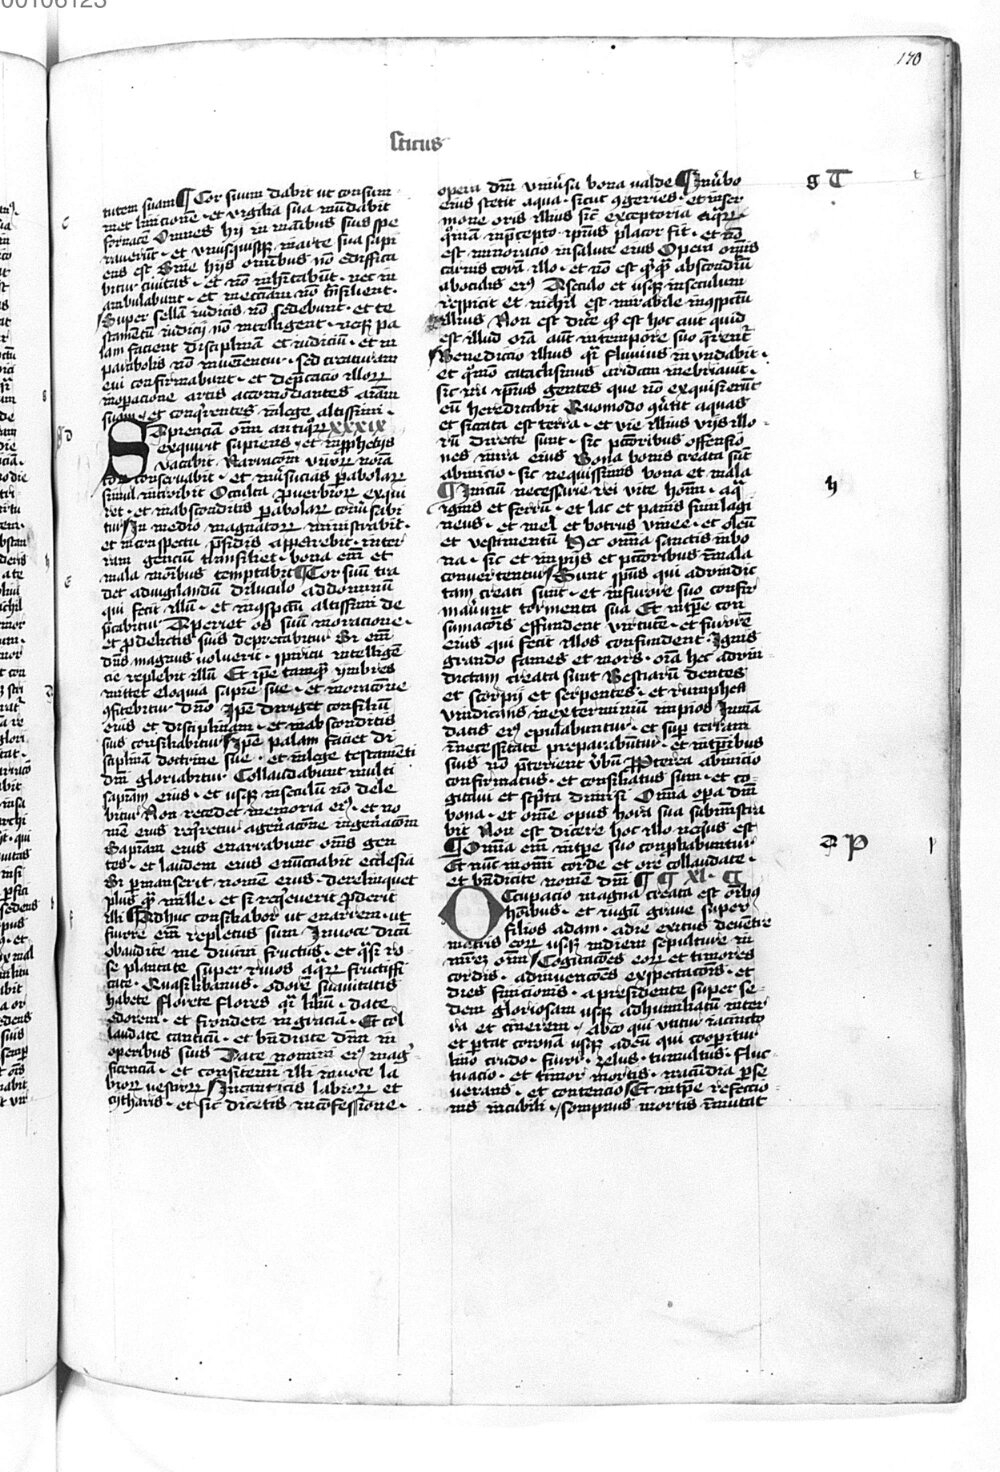 00106123
170
sticus
tutem suam ¶ Cor suum dabit ut consum
met linicione · et vigilia sua mūdabit
fornacē Omnes hij in maibus suis spe
raverūt · et vnusquisqꝫ in arte sua sapi
ens est Sine hijs omībus nō edifica
bitur civitas · et nō inhītabūt · nec in
ambulabunt · et in ecciam nō trāsiliēt ·
Super sellā iudicis nō sedebunt · et te
stamētū iudicij nō intelligent · neqꝫ pa
lam facient disciplinā et iudiciū · et in
parabolis nō inveniētur · sed creaturam
evi confirmabunt · et dep̄cacio illoꝝ
in opacione artis accomodantes aīam
suam · et conq̄rentes in lege altissimi ·
Sapienciā om̄i antiquoꝝ xxxix
exquiret sapiens · et in ꝓphetijs
vacabit Narracōm viroꝝ noīa
toꝝ conservabit · et in v̄sucias pabolaꝝ
simul introibit Occulta ꝓverbioꝝ exqui
ret · et in absconditis pabolaꝝ cōv̄sabi
tur In medio magnatoꝝ ministrabit ·
et in conspectu p̄sidis apparebit · in ter
ram genciū transiliet · bona em̄ et
mala in oībus temptabit ¶ Cor suū tra
det ad vigilandū diluculo ad dominū
qui fecit illū · et in ꝯspectu altissimi de
p̄cabitur Aperiet os suū in oracione ·
et ꝓ delictis suis deprecabitur Si em̄
dn̄s magnus voluerit · spiritu intelligē
cie replebit illū Et ip̄e tamqꝫ ymbres
mittet eloquia sapīe sue · et in oracōne
ꝯfitebitur dn̄o Ip̄e diriget consiliū
eius et disciplinam · et in absconditis
suis consiliabitur Ip̄e palam faciet di
sciplinā doctrine sue · et in lege testamēti
dn̄i gloriabitur Collaudabunt multi
sapīam eius · et usqꝫ in seculū nō dele
bitur Non recedet memoria eiꝯ · et no
mē eius reqretur a gn̄acōne in gen̄acōm
Sapīam eius enarrabunt om̄s gen
tes · et laudem eius enūciabit ecclesia
Si ꝑmanserit nomē eius · derelinquet
plus qꝫ mille · et si reqeverit ꝓderit
illi Adhuc consiliabor ut enarrem · ut
furore em̄ repletus sum In voce dicit
obaudite me divini fructus · et qꝫsi ro
se plantate super rivos aqꝝ fructifi
cate Quasi libanus · odorē suavitatis
habete Florete flores qꝫ liliū · date
odorem · et frondete in graciā · Et col
laudate canticū · et bn̄dicite dn̄m in
operibus suis Date nomini eiꝯ mag
ficenciā · et confitemi illi in voce la
bioꝝ vestroꝝ In canticis labioꝝ et
cytharis · et sic dicetis in cōfessione ·
opera dn̄i univ̄sa bona valde ¶ In v̄bo
eius stetit aqua · sicut ꝯgeries · et in ser
mone oris illius sic̄ exceptoria aqꝝ
qm̄ in p̄cepto ip̄ius placor fit · et nō
est minoracio in salute eius Opera om̄is
carnis corā illo · et nō est qꝫqꝫ absconditū
ab oculis eiꝯ A seculo et usqꝫ in seculum
respicit et nichil est mirabile in ꝯspectu
illius Non est dicere qꝫ est hoc aut quid
est illud oīa aūt in tempore suo q̄rent̄
Benedictio illius qꝫ fluvius inundabit ·
et qm̄o cataclismus aridam inebriavit ·
sic ira ip̄ius gentes que nō exquisierūt
eū hereditabit Quomodo ꝯv̄tit aquas
et siccata est terra · et vie illius vijs illo
rū directe sunt · sic pctōribus offensio
nes in ira eius Bona bonis creata sūt
ab inicio · sic nequissimis bona et mala
¶ Inicium necessarie rei vite hoīm · aqꝫ
ignis et ferrū · et lac et panis similagi
neus · et mel et botrus vinee · et oleū
et vestimentū Hec om̄ia sanctis in bo
na · sic et impijs et pctōribus in mala
convertentur Sunt sp̄us qui ad vindic
tam creati sunt · et in furore suo confir
maverūt tormenta sua Et in tp̄e con
sumacōis effundent virtutē · et furorē
eius qui fecit illos confundent · Ignis
grando fames et mors · oīa hec ad vin
dictam creata sunt Bestiarū dentes
et scorpij et serpentes · et rumphea
vindicans in exterminiū impios In mā
datis eiꝯ epulabuntur · et sup terram
in necessitate preparabūtur · et in tp̄ribus
suis nō p̄terient v̄bū Ꝓpterea ab inicio
confirmatus · et consiliatus sum · et co
gitavi et scpta dimisi Om̄ia opa dn̄i
bona · et om̄e opus hora sua submīstra
bit Non est dicere hoc illo nequius est
¶ Om̄ia em̄ in tp̄e suo conprobabuntur
Et nunc in om̄i corde et ore collaudate ·
et bn̄dicite nomen dn̄i ¶ ¶ XL · ¶
Occupacio magna creata est oībus
hoībus · et iugū grave super
filios adam · a die exitus de vētre
matris eoꝝ usqꝫ in diem sepulture in
mr̄em om̄i Cogitacōes eoꝝ et timores
cordis · adinvencōes exspectacōis · et
dies finicionis · a presidente super se
dem gloriosam usqꝫ ad humiliatū in ter
ra et cinerem · Ab eo qui vtitur iacincto
et portat coronā usqꝫ ad eū qui cooperitur
lino crudo · furor · zelus · tumultus · fluc
tuacio · et timor mortis · iracūdia p̄se
verans · et contencio Et in tp̄e refectio
nis in cubili · sompnus noctis in mutat
g T
h
P